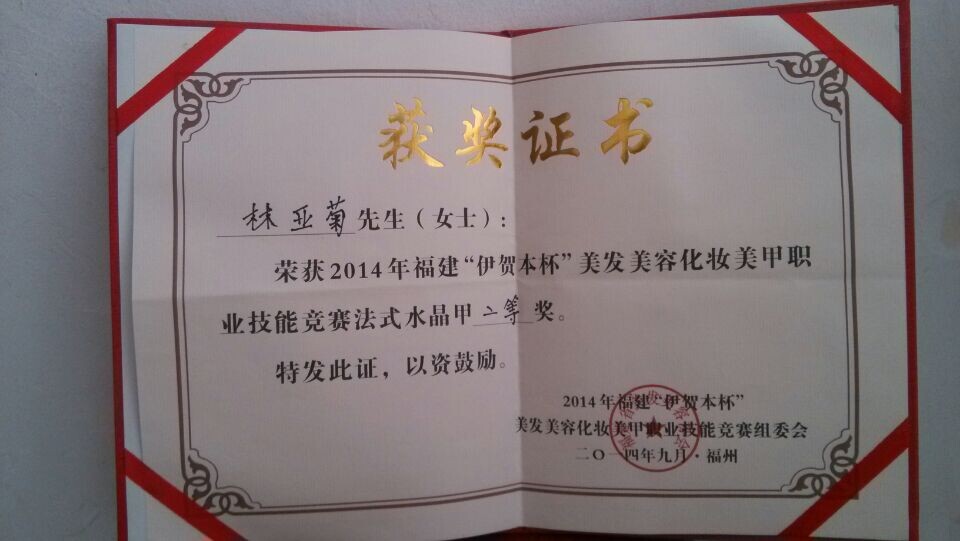 获奖证书
林亚菊先生（女士）：
荣获2014年福建“伊贺本杯”美发美容化妆美甲职
业技能竞赛法式水品甲二等奖。
特发此证，以资鼓励。
2014年福建“伊贺本杯”
美发美容化妆美甲职业技能竞赛组委会
二〇一四年九月·福州